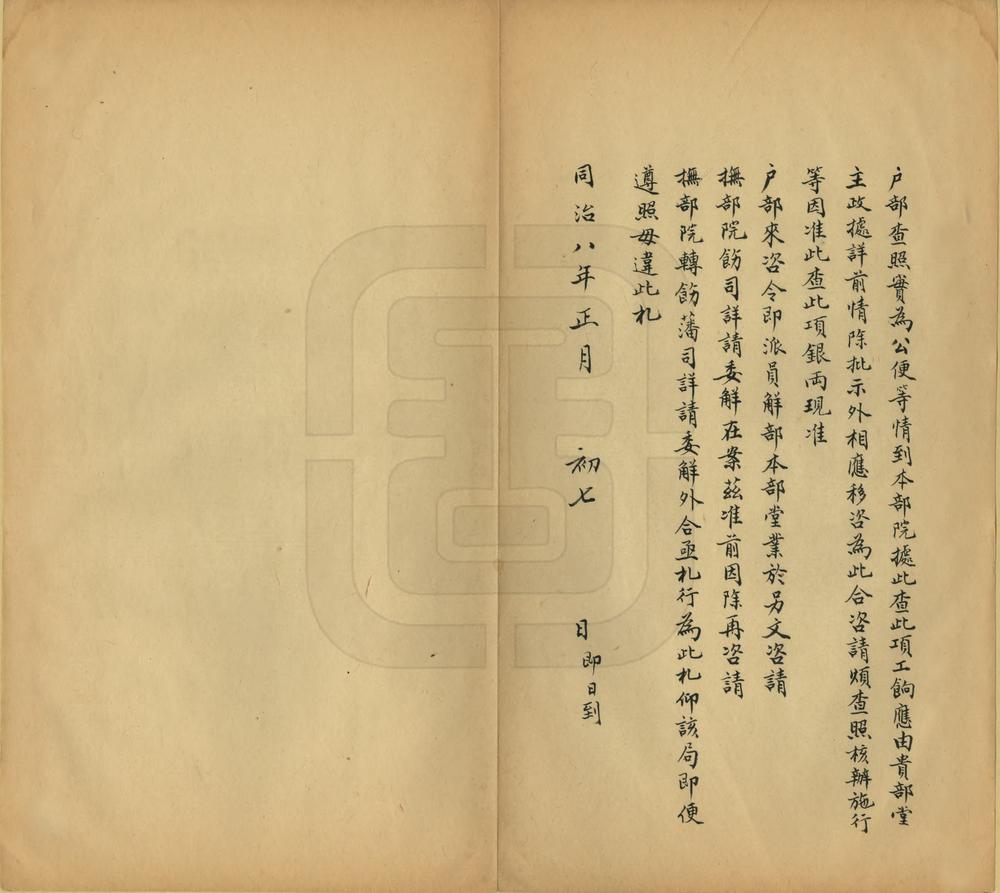 户部查照實為公便等情到本部院據此查此項工餉應由貴部堂
主政據詳前情除批示外相應移咨為此合咨請煩查照核辦施行
等因准此查此項銀兩現准
户部來咨令即派員解部本部堂業於另文咨請
撫部院飭司詳請委解在案茲准前因除再咨請
撫部院轉飭藩司詳請委解外合亟札行為此札仰該局即便
遵照毋違此札
同治八年正月 初七 日即日到